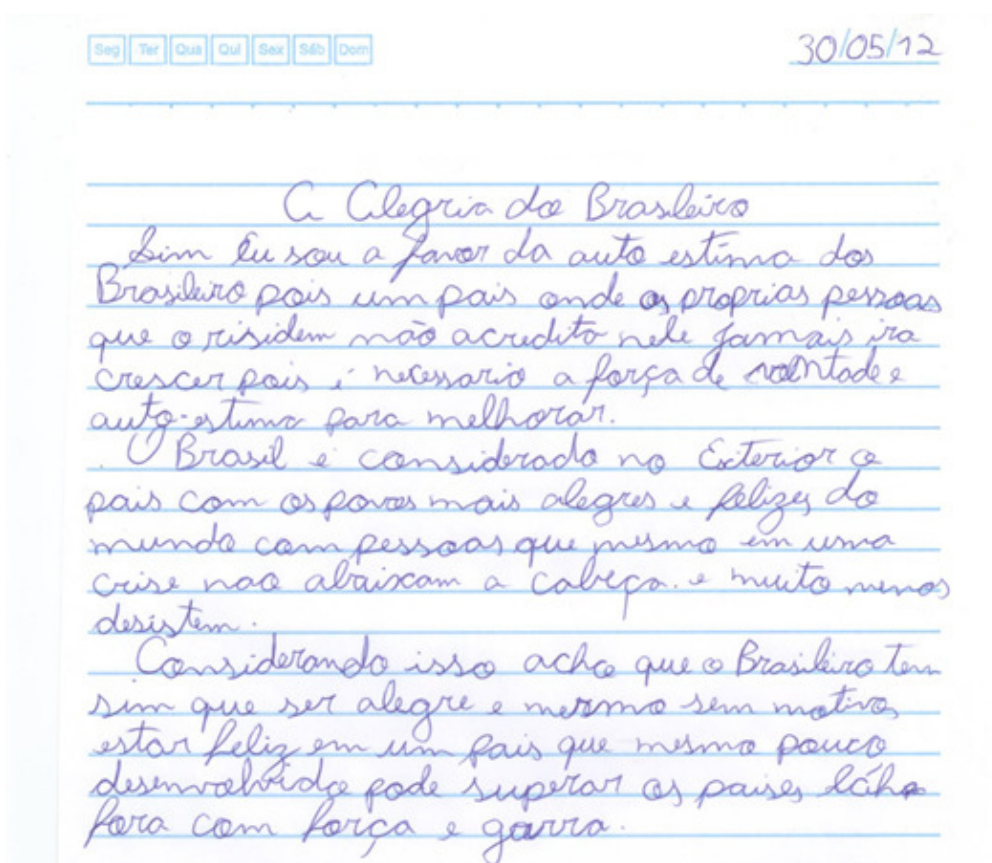 Seg Ter Qua Qui Sex Sáb Dom
30/05/12
A Alegria do Brasileiro
Sim Eu sou a favor da auto estima dos
Brasileiro pois um pais onde as proprias pessoas
que o risidem não acredita nele jamais ira
crescer pois é necessario a força de vontade e
auto-estima para melhorar.
O Brasil é considerado no Exterior o
pais com os povos mais alegres e felizes do
mundo com pessoas que mesmo em uma
crise nao abaixam a cabeça. e muito menos
desistem.
Considerando isso acho que o Brasileiro tem
sim que ser alegre e mesmo sem motivos
estar feliz em um pais que mesmo pouco
desenvolvido pode superar os paises
fora com força e garra.